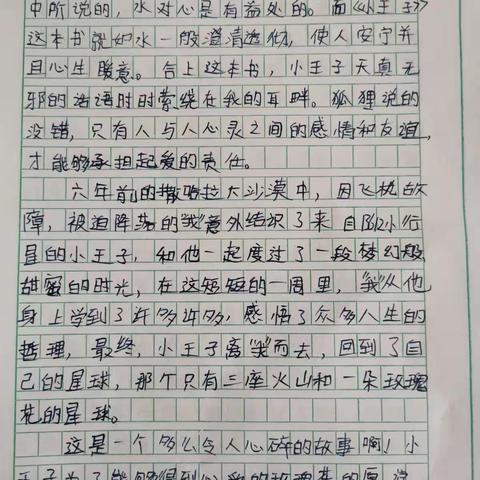 中所说的,水对心是有益处的。而《小王子》
这本书就如水一般澄清透彻,使人安宁并
且心生暖意。合上这本书,小王子天真无
邪的话语时时萦绕在我的耳畔。狐狸说的
没错,只有人与人心灵之间的感情和友谊,
才能够承担起爱的责任。
六年前的撒哈拉大沙漠中,因飞机故
障,被迫降落的"我"意外结识了来自B612小行
星的小王子,和他一起度过了一段梦幻般
甜蜜的时光,在这短短的一周里,"我"从他
身上学到了许多许多,感悟了众多人生的
哲理,最终,小王子离"我"而去,回到了自
己的星球,那个只有三座火山和一朵玫瑰
花的星球。
这是一个多么令人心碎的故事啊!小
王子为了能够得到心爱的玫瑰花的原谅